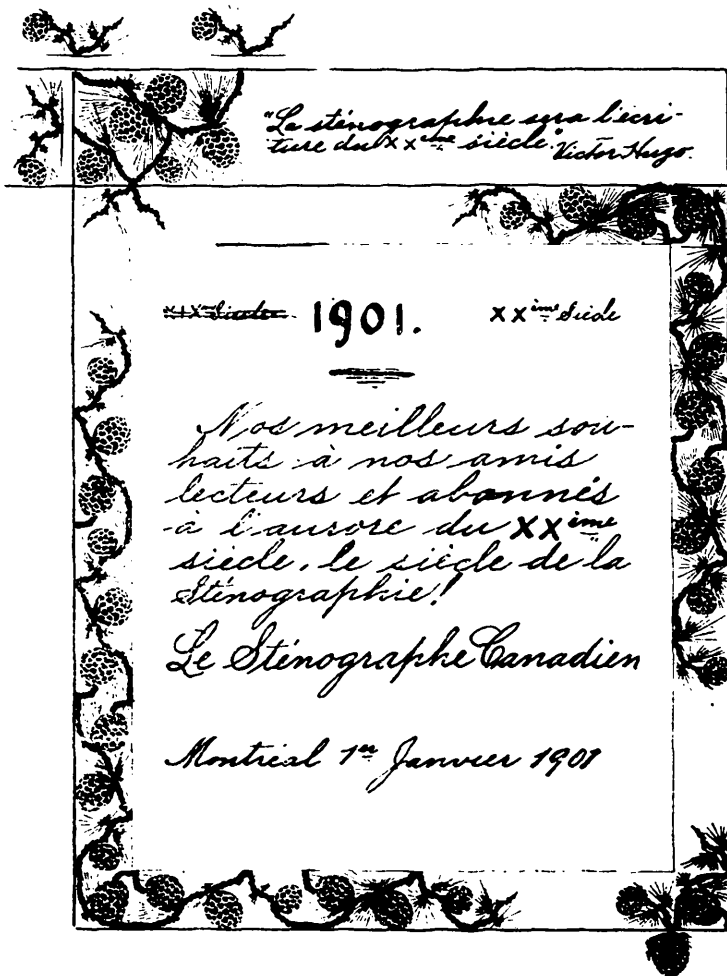 "La sténographie sera l'écri-
ture du XXème siècle". Victor Hugo.
XIXème Siècle 1901. XXème Siècle
Nos meilleurs sou-
haits à nos amis
lecteurs et abonnés
à l'aurore du XXème
siècle, le siècle de la
Sténographie!
Le Sténographe Canadien
Montréal 1er Janvier 1901